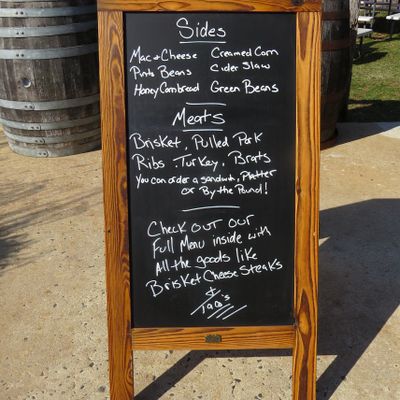 Sides
Mac + Cheese Creamed Corn
Pinto Beans Cider Slaw
Honey Cornbread Green Beans
Meats
Brisket, Pulled Pork
Ribs, Turkey, Brats
You can order a sandwich, Platter
or By the Pound!
Check out our
Full Menu inside with
All the goods like
Brisket Cheese Steaks
+